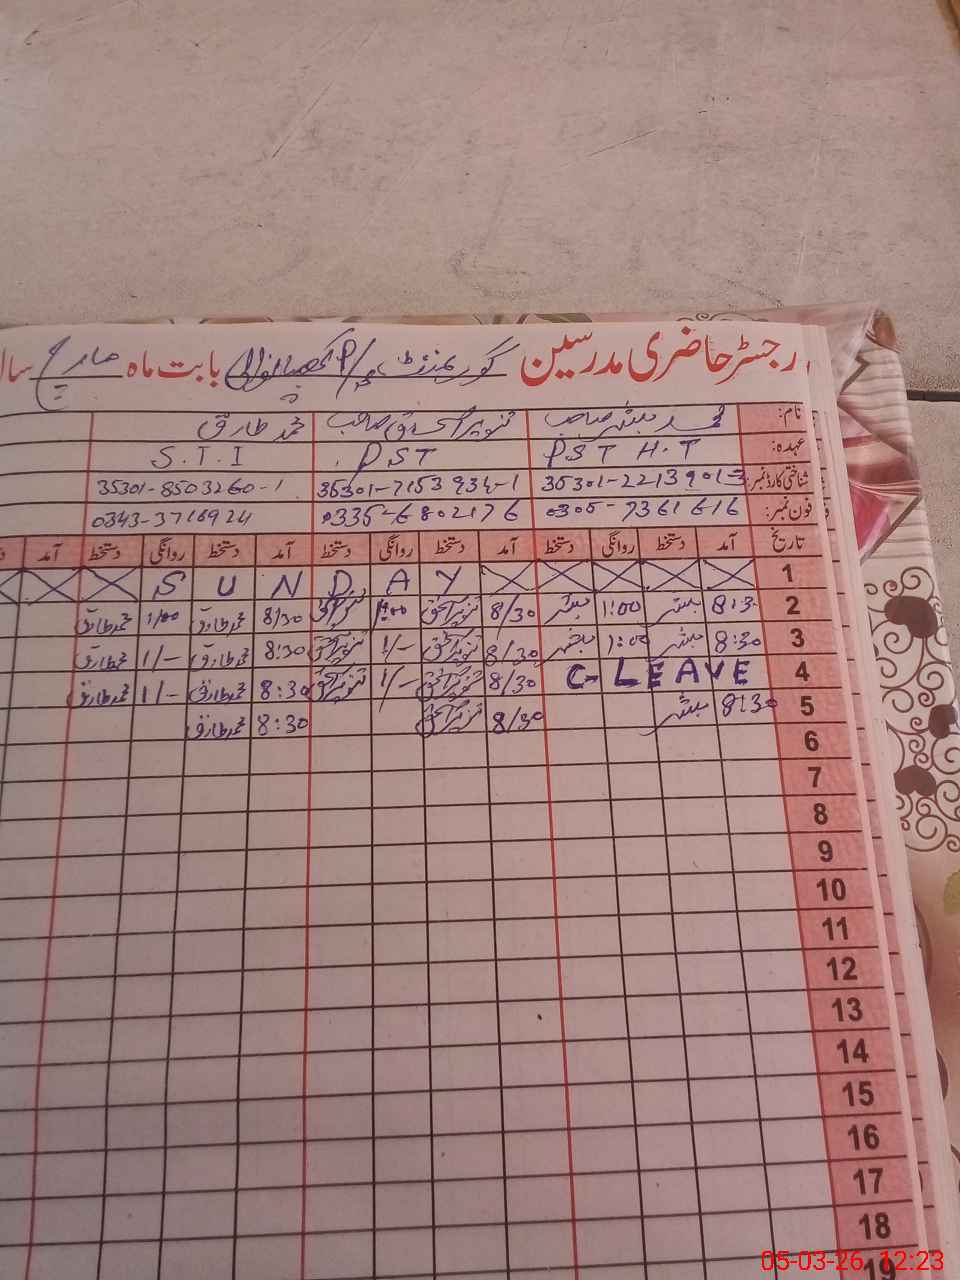 رجسٹر حاضری مدرسین گورنمنٹ P/S بابت ماہ مارچ سال
نام: محمد مبشر صاحب تنویر اسحاق صاحب محمد طارق
عہدہ: P.S.T H.T P.S.T S.T.I
شناختی کارڈ نمبر: 35301-2213901-3 35301-7153934-1 35301-8503260-1
فون نمبر: 0305-7361616 0335-6802176 0343-3716924
تاریخ آمد دستخط روانگی دستخط آمد دستخط روانگی دستخط آمد دستخط روانگی دستخط آمد
1 S U N D A Y
2 8:3 مبشر 1:00 مبشر 8/30 تنویر اسحق 1:00 8/30 محمد طارق 1/00 محمد طارق
3 8:30 مبشر 1:00 مبشر 8/30 تنویر اسحق 1/- تنویر اسحق 8:30 محمد طارق 1/- محمد طارق
4 C-LEAVE 8/30 تنویر اسحق 1/- تنویر اسحق 8:30 محمد طارق 1/- محمد طارق
5 8:30 مبشر 8/30 تنویر اسحق 8:30 محمد طارق
6
7
8
9
10
11
12
13
14
15
16
17
18
19
05-03-26 12:23